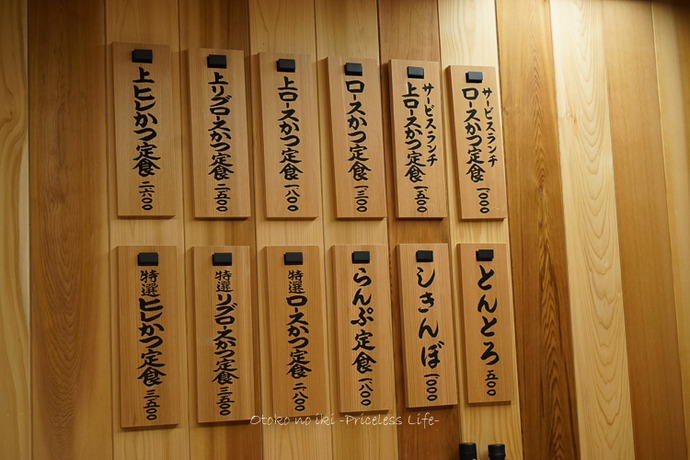 サービスランチ
ロースかつ定食 一〇〇〇
サービスランチ
上ロースかつ定食 一五〇〇
ロースかつ定食 一三〇〇
上ロースかつ定食 一八〇〇
上リブロースかつ定食 二五〇〇
上ヒレかつ定食 二六〇〇
とんとろ 五〇〇
しきんぼ 一〇〇〇
らんぷ定食 一八〇〇
特選ロースかつ定食 二八〇〇
特選リブロースかつ定食 三五〇〇
特選ヒレかつ定食 三五〇〇
Otoko no iki -Priceless Life-